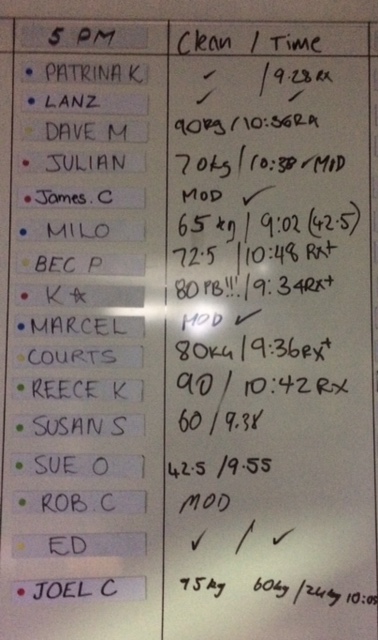 5 PM Clean / Time
PATRINA K ✓ / 9.28 RX
LANZ ✓ ✓
DAVE M 90kg / 10:36RX
JULIAN 70kg / 10:38 ✓ MOD
James. C MOD ✓
MILO 65 kg / 9:02 (42.5)
BEC P 72.5 / 10:48 RX+
K ☆ 80 PB!!! / 9:34RX+
MARCEL MOD ✓
COURTS 80KG / 9:36RX+
REECE K 90 / 10:42 RX
SUSAN S 60 / 9.38
SUE O 42.5 / 9.55
ROB. C MOD
ED ✓ / ✓
JOEL C 75kg 60kg / 24kg 10:05